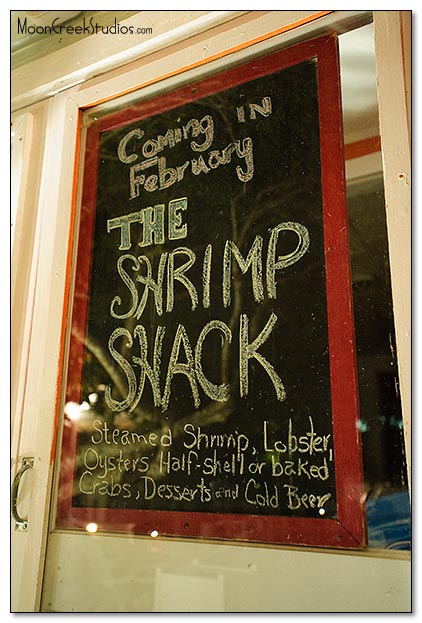 MoonCreekStudios.com
Coming in
February
THE
SHRIMP
SHACK
Steamed Shrimp, Lobster,
Oysters Half-shell or baked
Crabs, Desserts and Cold Beer